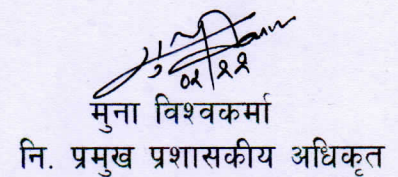 ०२/११
मुना विश्वकर्मा
नि. प्रमुख प्रशासकीय अधिकृत